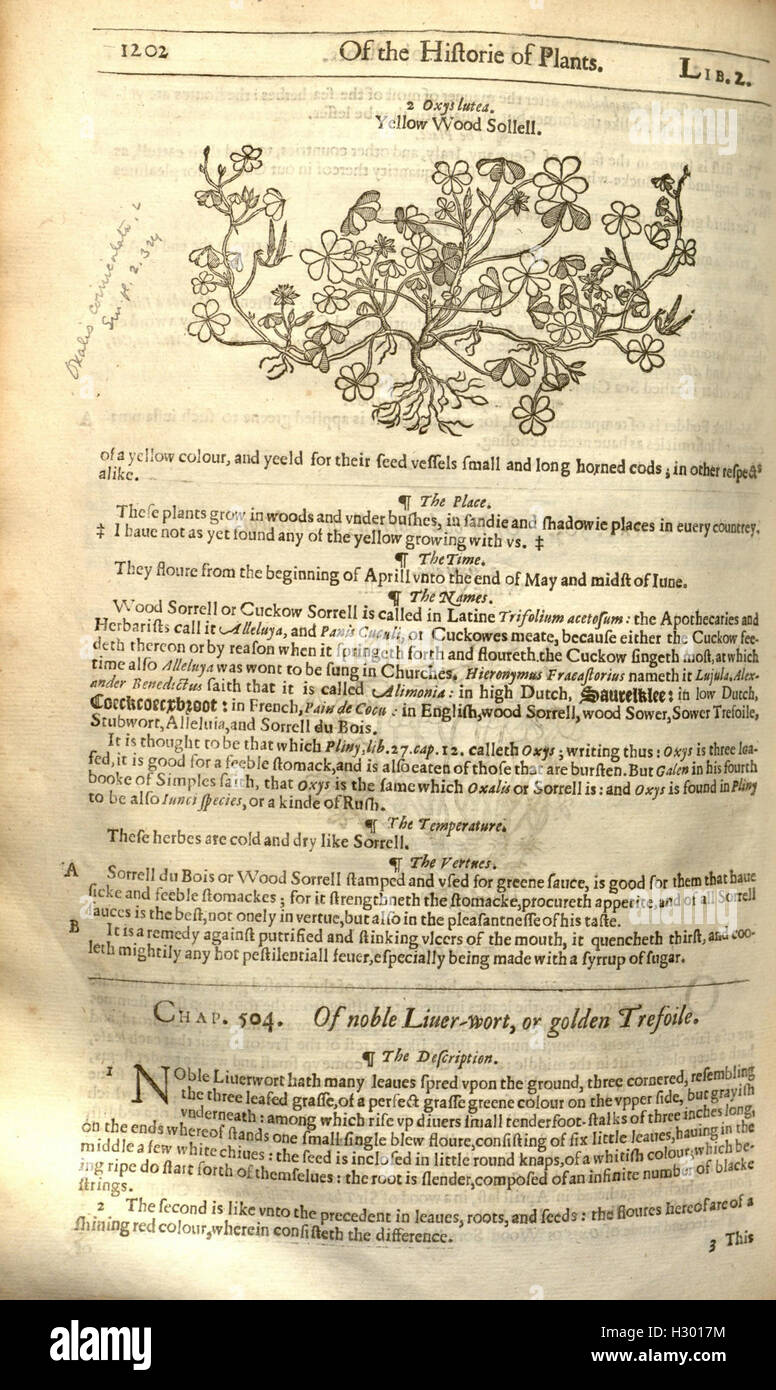 1202 Of the Hiſtorie of Plants. LIB. 2.
2 Oxys lutea.
Yellow Wood Sollell.
Oxalis corniculata, L
Sm. fl. 2. 324
of a yellow colour, and yeeld for their ſeed veſſels ſmall and long horned cods; in other reſpects
alike.
¶ The Place.
Theſe plants grow in woods and vnder buſhes, in ſandie and ſhadowie places in euery countrey.
‡ I haue not as yet found any of the yellow growing with vs. ‡
¶ The Time.
They floure from the beginning of Aprill vnto the end of May and midſt of Iune.
¶ The Names.
Wood Sorrell or Cuckow Sorrell is called in Latine Trifolium acetoſum: the Apothecaries and
Herbariſts call it Alleluya, and Panis Cuculi, or Cuckowes meate, becauſe either the Cuckow fee-
deth thereon or by reaſon when it ſpringeth forth and floureth the Cuckow ſingeth moſt, at which
time alſo Alleluya was wont to be ſung in Churches. Hieronymus Fracaſtorius nameth it Lujula, Alex-
ander Benedictus ſaith that it is called Alimonia: in high Dutch, Saurelklee: in low Dutch,
Coeckcoecxbroot: in French, Pain de Cocu: in Engliſh, wood Sorrell, wood Sower, Sower Trefoile,
Stubwort, Alleluia, and Sorrell du Bois.
It is thought to be that which Pliny, lib. 27. cap. 12. calleth Oxys; writing thus: Oxys is three lea-
fed, it is good for a feeble ſtomack, and is alſo eaten of thoſe that are burſten. But Galen in his fourth
booke of Simples ſaith, that Oxys is the ſame which Oxalis or Sorrell is: and Oxys is found in Pliny
to be alſo Iunci ſpecies, or a kinde of Ruſh.
¶ The Temperature.
Theſe herbes are cold and dry like Sorrell.
¶ The Vertues.
A Sorrell du Bois or Wood Sorrell ſtamped and vſed for greene ſauce, is good for them that haue
ſicke and feeble ſtomackes; for it ſtrengthneth the ſtomacke, procureth appetite, and of all Sorrell
ſauces is the beſt, not onely in vertue, but alſo in the pleaſantneſſe of his taſte.
B It is a remedy againſt putrified and ſtinking vlcers of the mouth, it quencheth thirſt, and coo-
leth mightily any hot peſtilentiall feuer, eſpecially being made with a ſyrrup of ſugar.
CHAP. 504. Of noble Liuer-wort, or golden Trefoile.
¶ The Deſcription.
1 NOble Liuerwort hath many leaues ſpred vpon the ground, three cornered, reſembling
the three leafed graſſe, of a perfect graſſe greene colour on the vpper ſide, but grayiſh
vnderneath: among which riſe vp diuers ſmall tender foot-ſtalks of three inches long,
on the ends whereof ſtands one ſmall ſingle blew floure, conſiſting of ſix little leaues, hauing in the
middle a few white chiues: the ſeed is incloſed in little round knaps, of a whitiſh colour, which be-
ing ripe do ſtart forth of themſelues: the root is ſlender, compoſed of an infinite number of blacke
ſtrings.
2 The ſecond is like vnto the precedent in leaues, roots, and ſeeds: the floures hereof are of a
ſhining red colour, wherein conſiſteth the difference.
3 This
alamy
Image ID: H3017M
www.alamy.com